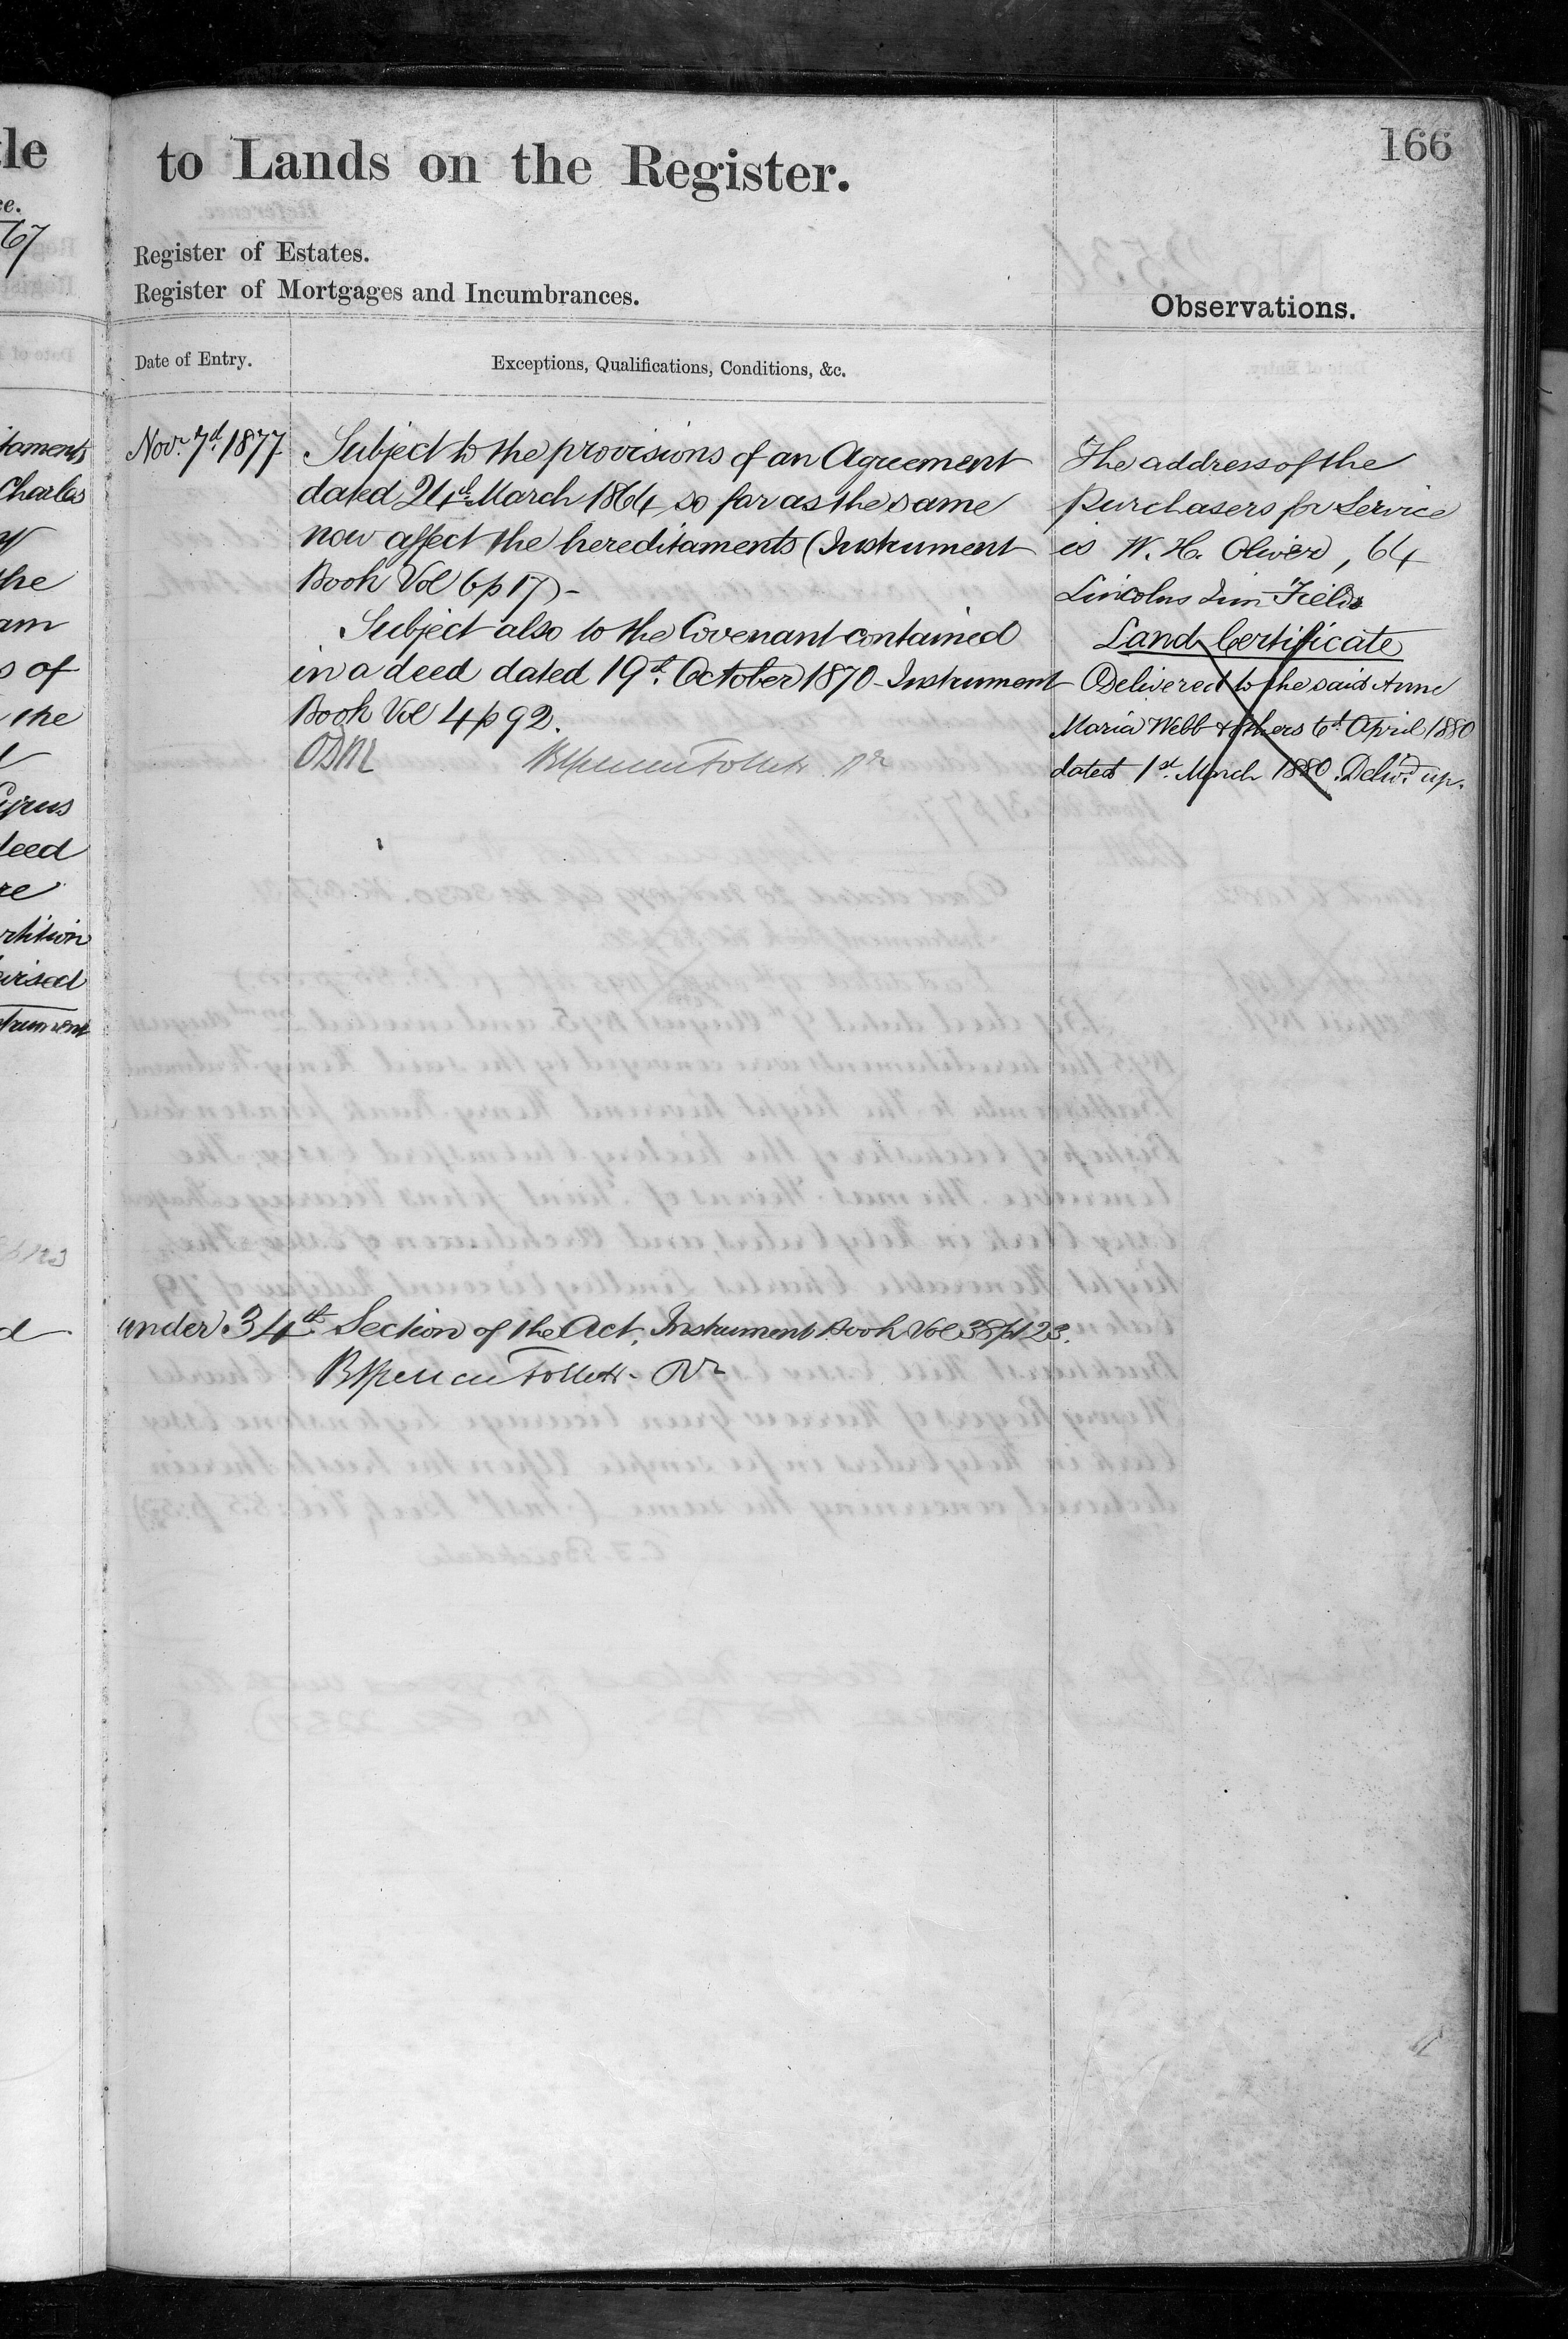 166
to Lands on the Register.
Register of Estates.
Register of Mortgages and Incumbrances.
Observations.
Date of Entry.
Exceptions, Qualifications, Conditions, &c.
Novr. 7d. 1877
Subject to the provisions of an Agreement
dated 24th March 1864, so far as the same
now affect the hereditaments (Instrument
Book Vol 6 p 17) -
Subject also to the Covenant contained
in a deed dated 19th. October 1870 - Instrument
Book Vol 4 p 92.
The address of the
Purchasers for Service
is W. H. Oliver, 64
Lincolns Inn Fields
Land Certificate
Delivered to the said Anne
Maria Webb & others 6d. April 1880
dated 1st. March 1880. Delivd. up.
under 34th. Section of the Act, Instrument Book Vol 38 p 123.
le
67
taments
Charles
the
am
s of
the
Cyrus
deed
re
rtition
vised
trument